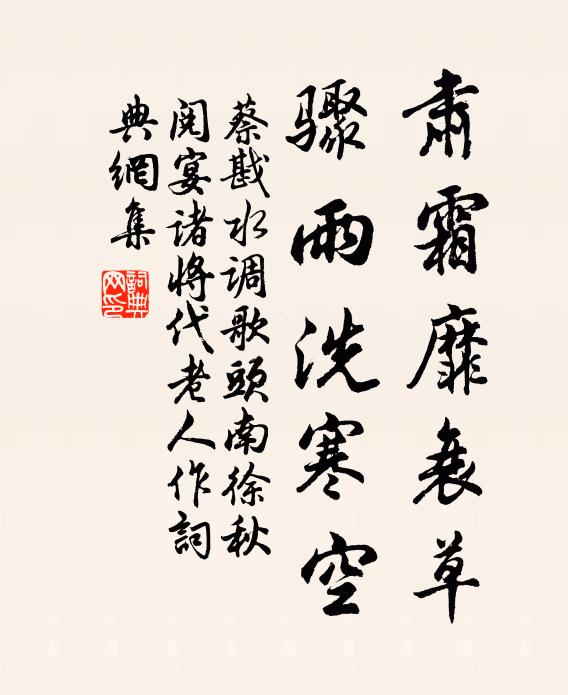 肃霜靡衰草
骤雨洗寒空
蔡戡水调歌頭南徐秋
阅宴诸将代老人作詞
典網集
詞典網印